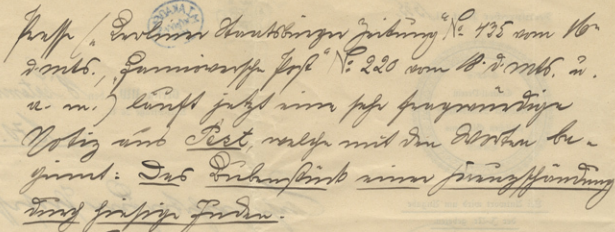 Presse („Berliner Staatsbürger Zeitung“ No. 435 vom 16
d. mts., „Hannoversche Post“ No. 220 vom 18. d. mts. u.
a. m.) läuft jetzt eine sehr fragwürdige
Notiz aus Pest, welche mit den Worten be-
ginnt: Das Bubenstück einer Kreuzschändung
durch hiesige Juden.